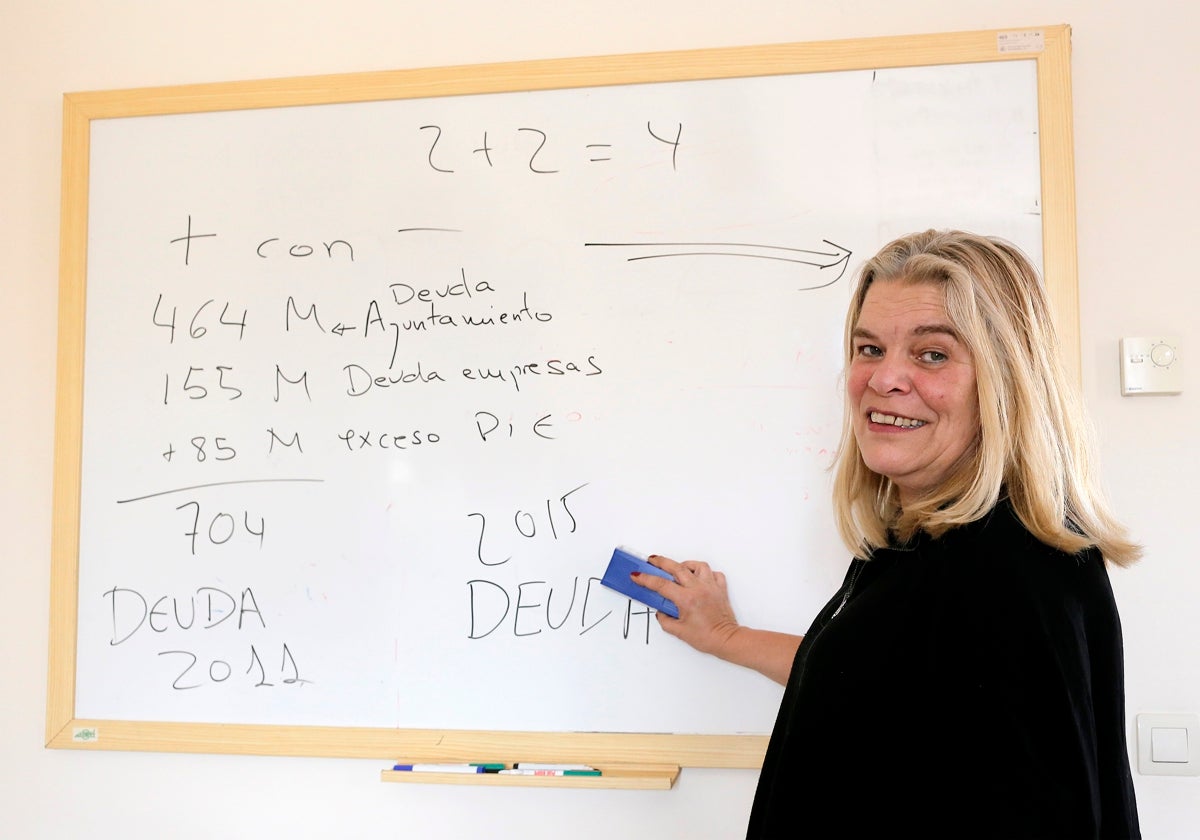 2 + 2 = 4
+ con —
464 M ← Deuda Ayuntamiento
155 M Deuda empresas
+85 M exceso PiE
704
DEUDA
2011
2015
DEUDA